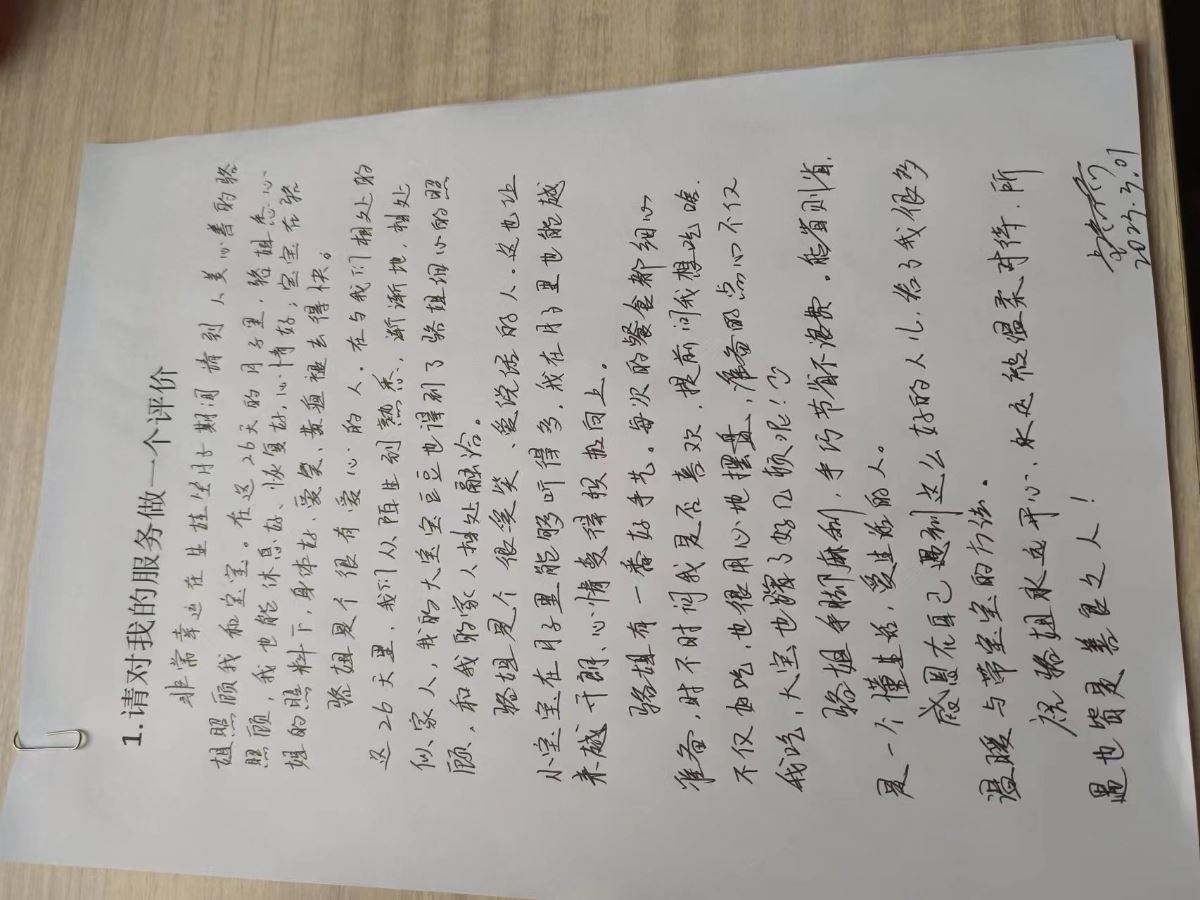 1.请对我的服务做一个评价
非常幸运在生娃坐月子期间请到人美心善的骆
姐照顾我和宝宝。在这26天的月子里，骆姐悉心
照顾，我也能休息好、恢复好，心情好；宝宝在骆
姐的照料下，身体好、爱笑、黄疸褪去得快。
骆姐是个很有爱心的人，在与我们相处的
这26天里，我们从陌生到熟悉，渐渐地，相处
似家人，我的大宝豆豆也得到了骆姐细心的照
顾，和我的家人相处融洽。
骆姐是个很爱笑、爱说话的人，这也让
小宝宝在月子里能够听得多，我在月子里也能越
来越开朗、心情变得积极向上。
骆姐有一番好手艺。每次的餐食都细心
准备，时不时问我是否喜欢，提前问我想吃啥，
不仅好吃，也很用心地摆盘，准备的点心不仅
我吃，大宝也蹭了好几顿呢！
骆姐手脚麻利，手巧节省不浪费。能省则省，
是一个懂生活，爱生活的人。
感恩在自己遇到这么好的人儿，给了我很多
温暖与带宝宝的方法。
祝骆姐永远开心、永远被温柔对待，所
遇也皆是善良之人！
2023.3.01